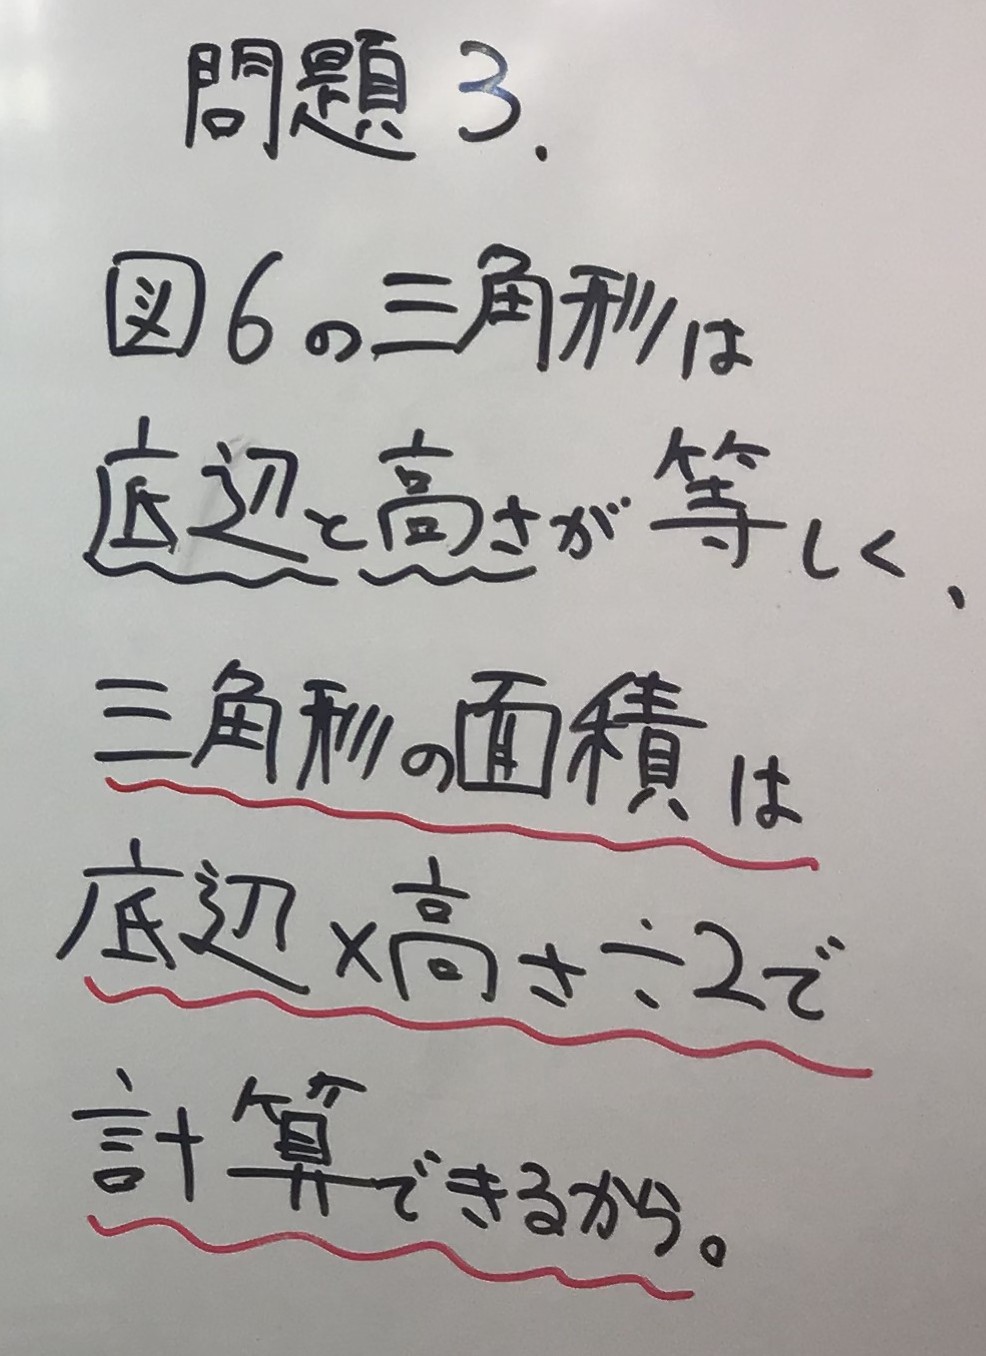 問題3.
図6の三角形は
底辺と高さが等しく、
三角形の面積は
底辺×高さ÷2で
計算できるから。